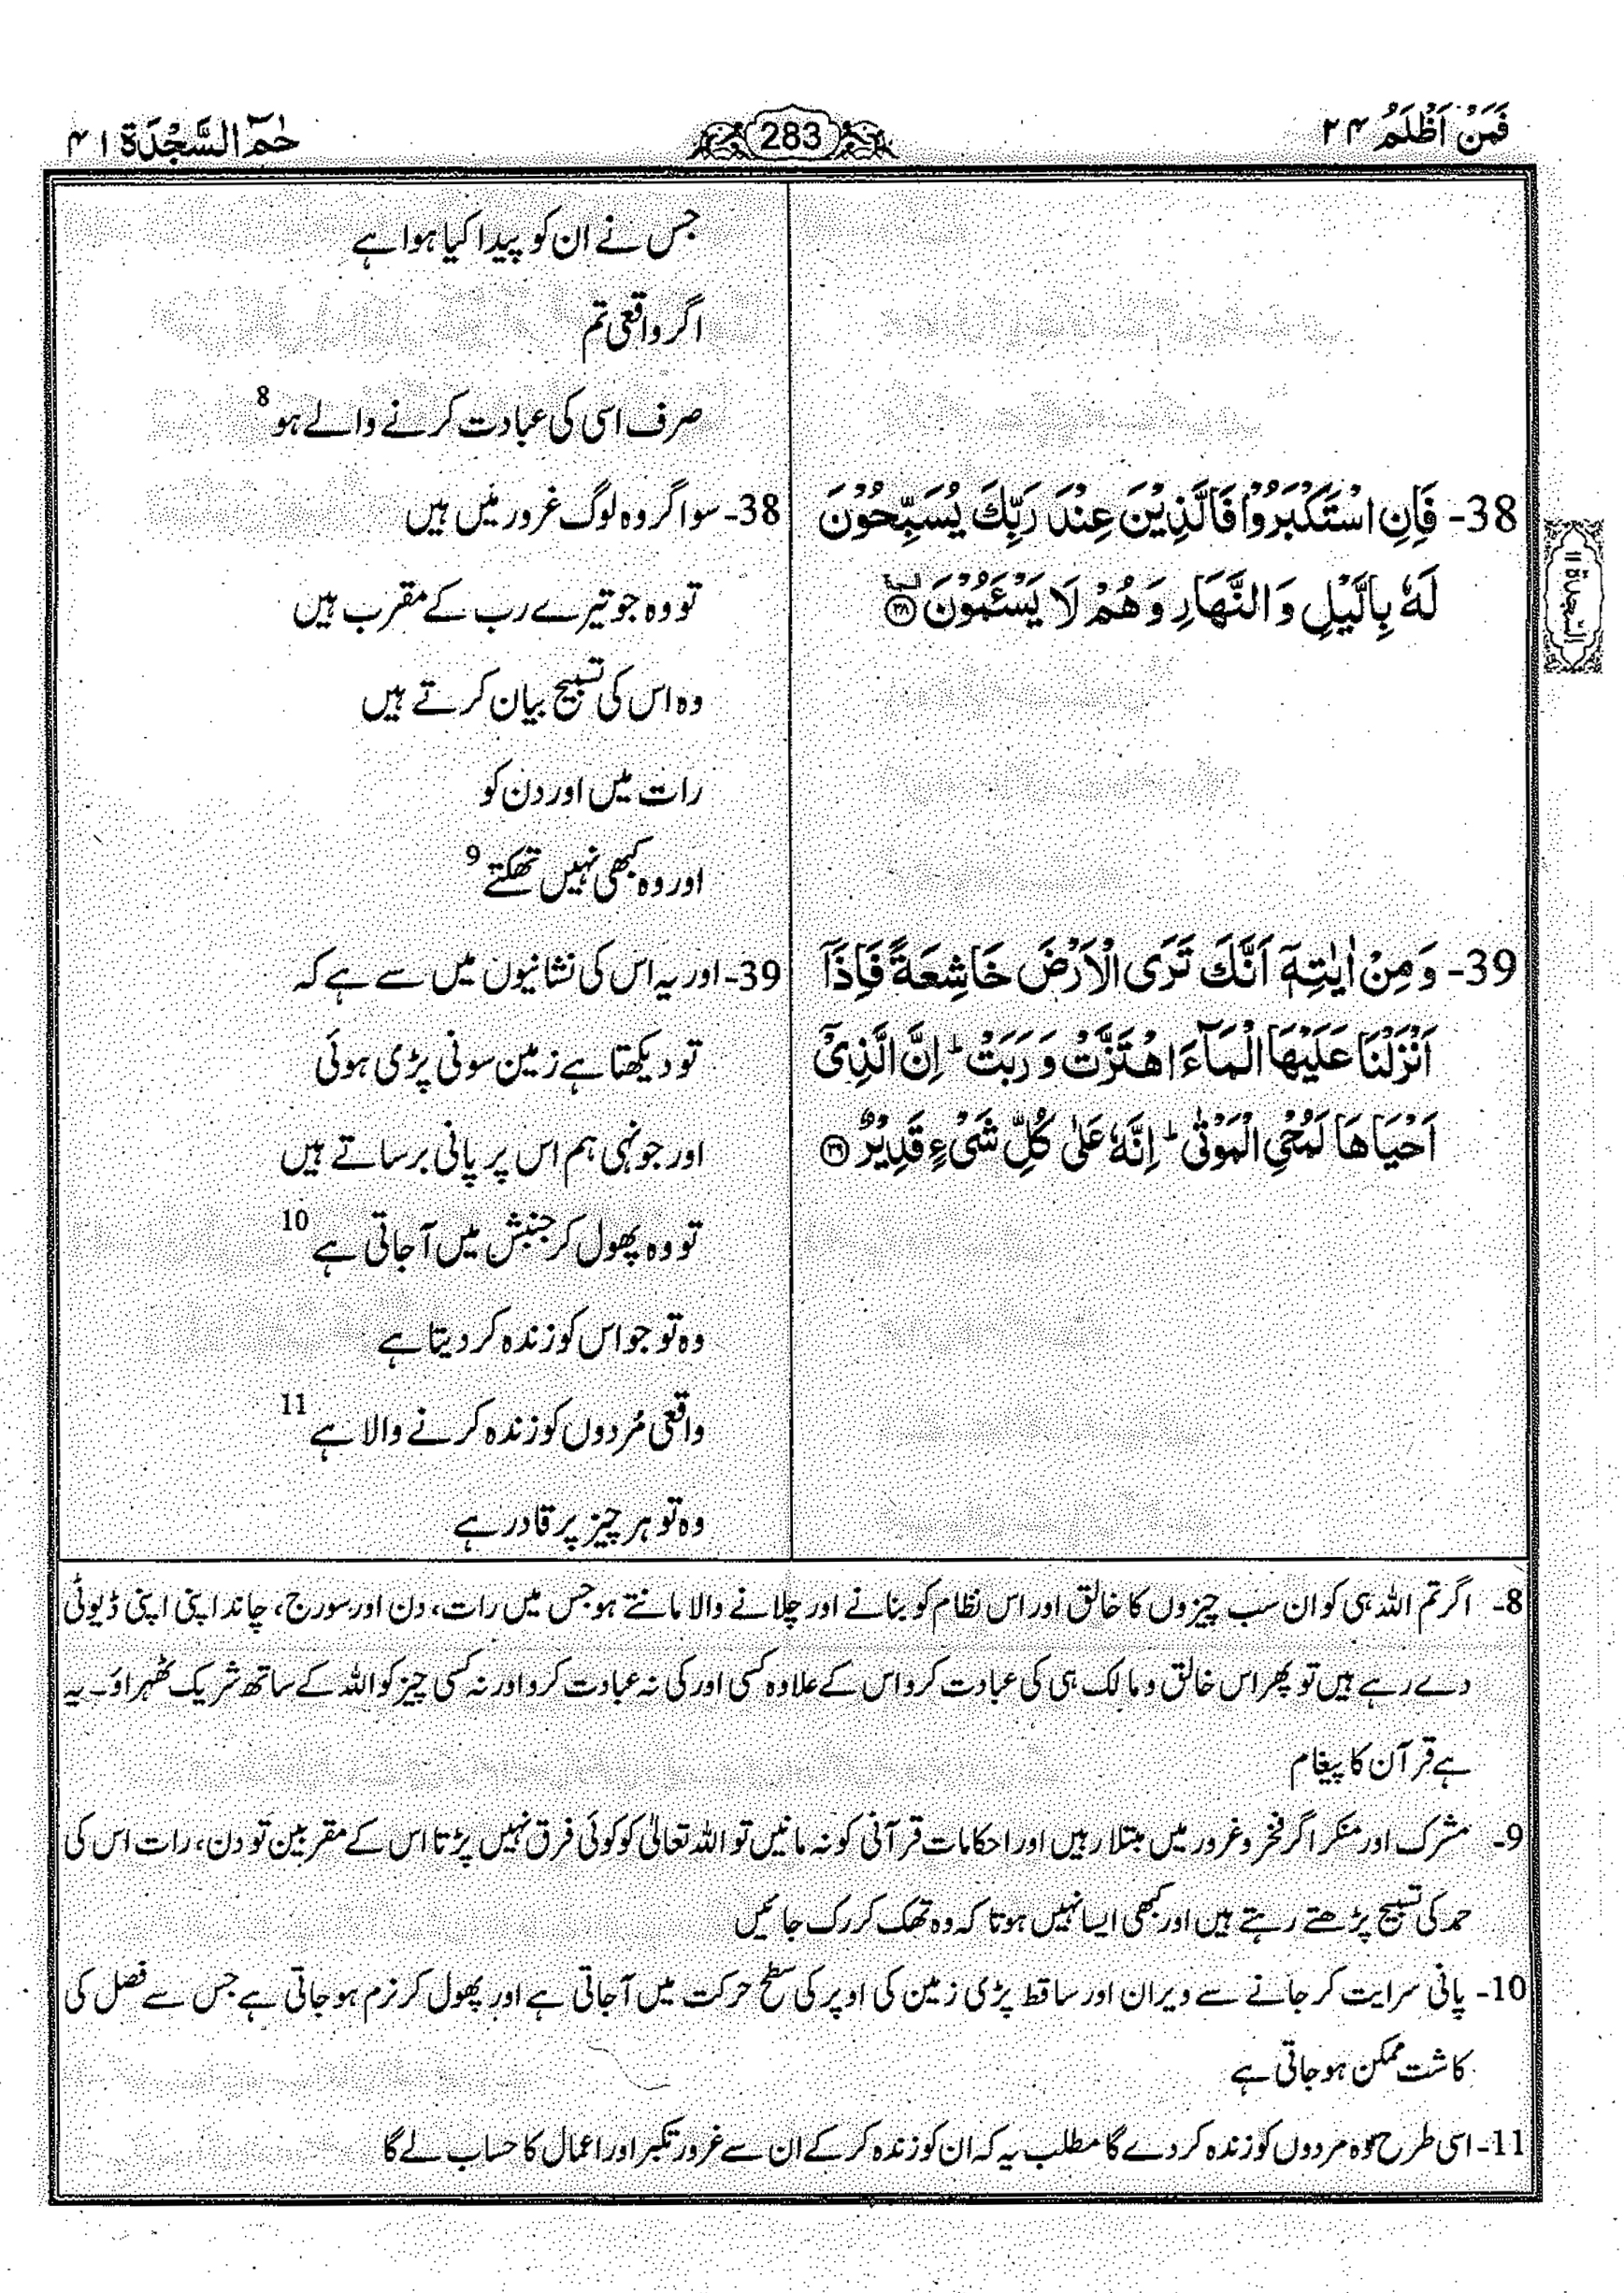 فَمَنْ اَظْلَمُ ۲۴
283
حٰمٓ السَّجْدَة ۴۱
جس نے ان کو پیدا کیا ہوا ہے
اگر واقعی تم
صرف اسی کی عبادت کرنے والے ہو 8
38- فَاِنِ اسْتَكْبَرُوْا فَالَّذِيْنَ عِنْدَ رَبِّكَ يُسَبِّحُوْنَ
لَهٗ بِالَّيْلِ وَ النَّهَارِ وَ هُمْ لَا يَسْـَٔمُوْنَ ۩ ﴿۳۸﴾
السجدۃ ۱۱
38- سو اگر وہ لوگ غرور میں ہیں
تو وہ جو تیرے رب کے مقرب ہیں
وہ اس کی تسبیح بیان کرتے ہیں
رات میں اور دن کو
اور وہ کبھی نہیں تھکتے 9
39- وَ مِنْ اٰيٰتِهٖٓ اَنَّكَ تَرَى الْاَرْضَ خَاشِعَةً فَاِذَآ
اَنْزَلْنَا عَلَيْهَا الْمَآءَ اهْتَزَّتْ وَ رَبَتْ ؕ اِنَّ الَّذِيْٓ
اَحْيَاهَا لَمُحْيِ الْمَوْتٰى ؕ اِنَّهٗ عَلٰى كُلِّ شَيْءٍ قَدِيْرٌ ﴿۳۹﴾
39- اور یہ اس کی نشانیوں میں سے ہے کہ
تو دیکھتا ہے زمین سونی پڑی ہوئی
اور جونہی ہم اس پر پانی برساتے ہیں
تو وہ پھول کر جنبش میں آجاتی ہے 10
وہ تو جو اس کو زندہ کر دیتا ہے
واقعی مُردوں کو زندہ کرنے والا ہے 11
وہ تو ہر چیز پر قادر ہے
8- اگر تم اللہ ہی کو ان سب چیزوں کا خالق اور اس نظام کو بنانے اور چلانے والا مانتے ہو جس میں رات، دن اور سورج، چاند اپنی اپنی ڈیوٹی
دے رہے ہیں تو پھر اس خالق و مالک ہی کی عبادت کرو اس کے علاوہ کسی اور کی نہ عبادت کرو اور نہ کسی چیز کو اللہ کے ساتھ شریک ٹھہراؤ۔ یہ
ہے قرآن کا پیغام
9- مشرک اور منکر اگر فخر و غرور میں مبتلا رہیں اور احکامات قرآنی کو نہ مانیں تو اللہ تعالیٰ کو کوئی فرق نہیں پڑتا اس کے مقربین تو دن، رات اس کی
حمد کی تسبیح پڑھتے رہتے ہیں اور کبھی ایسا نہیں ہوتا کہ وہ تھک کر رک جائیں
10- پانی سرایت کر جانے سے ویران اور ساقط پڑی زمین کی اوپر کی سطح حرکت میں آجاتی ہے اور پھول کر نرم ہو جاتی ہے جس سے فصل کی
کاشت ممکن ہو جاتی ہے
11- اسی طرح وہ مردوں کو زندہ کر دے گا مطلب یہ کہ ان کو زندہ کر کے ان سے غرور تکبر اور اعمال کا حساب لے گا